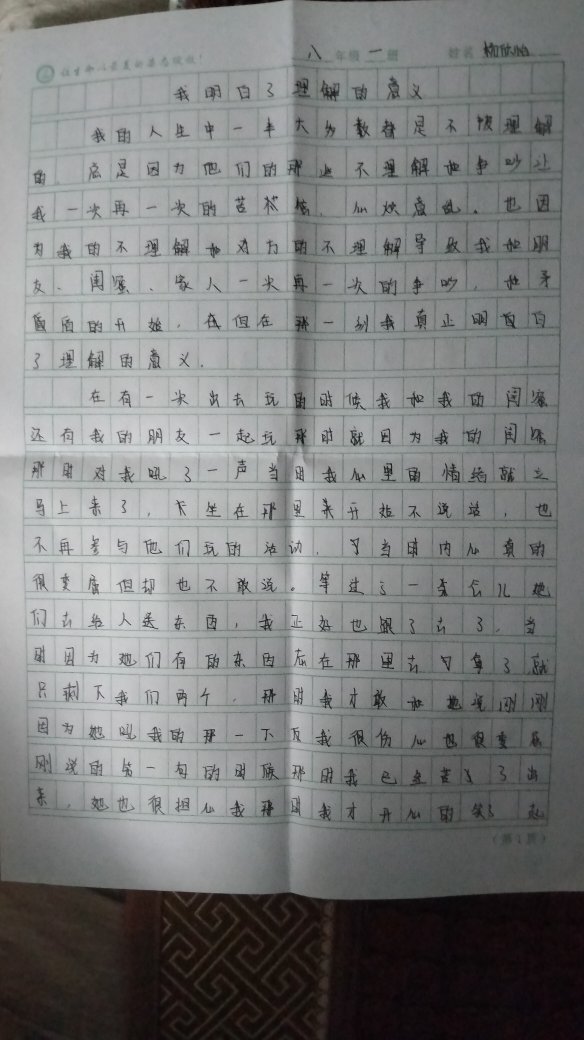 让生命以最美的姿态绽放! 八 年级 一 班 姓名
我明白了理解的意义
我的人生中一半大多数都是不被理解
的。总是因为他们的那些不理解和争吵让
我一次再一次的苦恼,心烦意乱。也因
为我的不理解和对方的不理解导致我和朋
友、闺蜜、家人一次再一次的争吵,和矛
盾盾的开始,在但在那一刻我真正明白白
了理解的意义。
在有一次出去玩的时候我和我的闺蜜
还有我的朋友一起玩那时就因为我的闺蜜
那时对我吼了一声当时我心里的情绪就立
马上来了,坐在那里来开始不说话,也
不再参与他们玩的活动,当时内心真的
很变扭但却也不敢说。等过了一会儿她
们去给人送东西,我正好也跟了去了,当
时因为她们有的东西忘在那里去了就
只剩下我们两个,那时我才敢和她说刚刚
因为她吼我的那一下我很伤心也很变扭
刚说的第一句的时候那时我已经了出
来,她也很担心我那时我才开心的笑了起
(第1页)